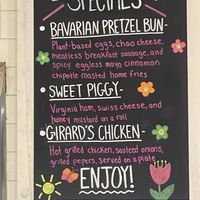 SPECIALS
•BAVARIAN PRETZEL BUN-
Plant-based eggs, chao cheese,
meatless breakfast sausage, and
spicy eggless mayo cinnamon
chipotle roasted home fries
•SWEET PIGGY-
Virginia ham, swiss cheese, and
honey mustard on a roll
•GIRARD'S CHICKEN-
Hot grilled chicken, sauteed onions,
grilled pepers, served on a plate
ENJOY!